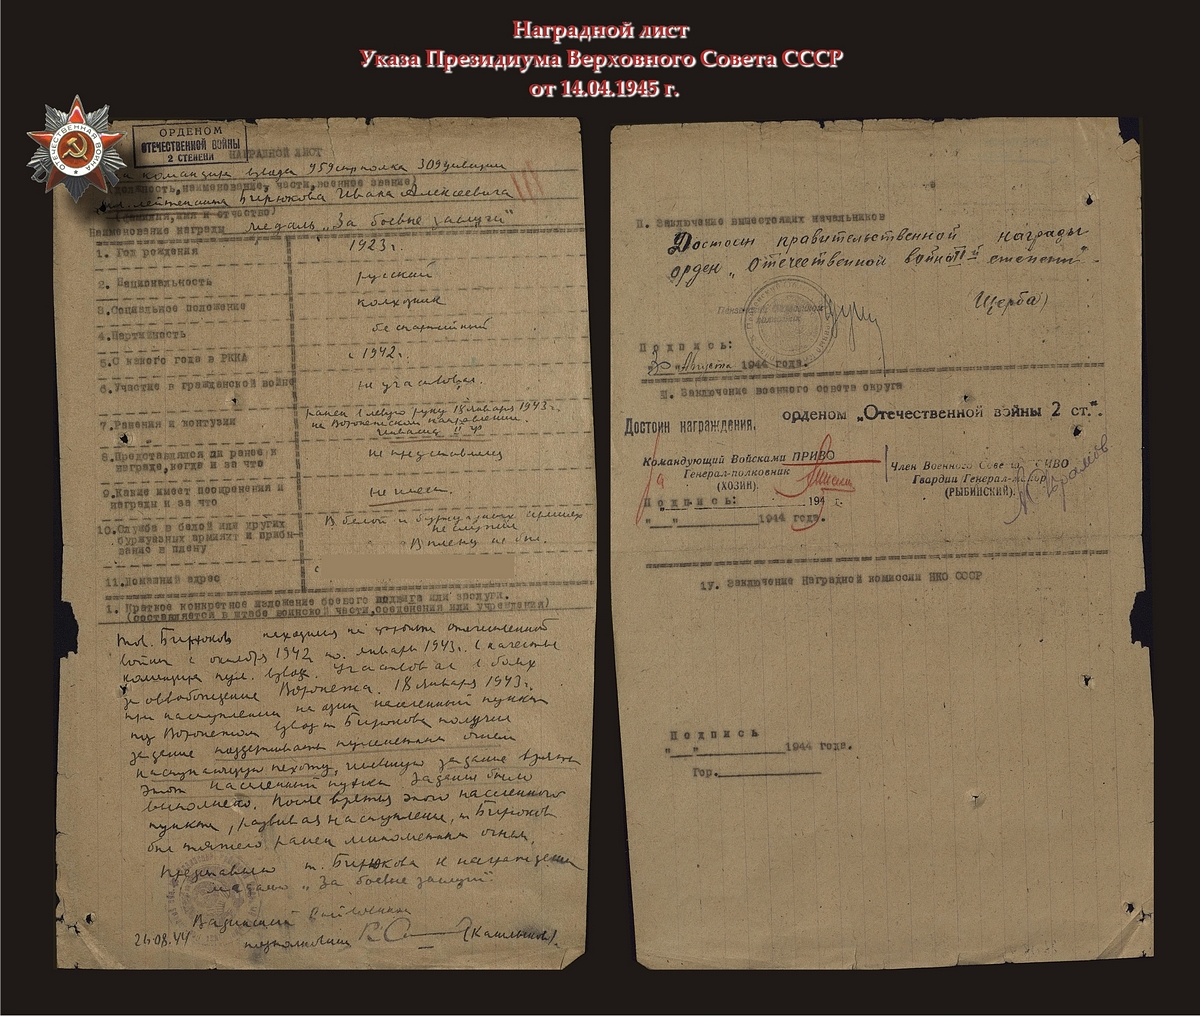 Наградной лист
Указа Президиума Верховного Совета СССР
от 14.04.1945 г.
ОТЕЧЕСТВЕННАЯ ВОЙНА
ОРДЕНОМ
ОТЕЧЕСТВЕННОЙ ВОЙНЫ
2 СТЕПЕНИ
НАГРАДНОЙ ЛИСТ
командира взвода 959 стр полка 309 дивизии
должность, наименование, части, военное звание)
лейтенанта Бирюкова Ивана Алексеевича
(фамилия, имя и отчество)
Наименование награды медаль „За боевые заслуги"
1. Год рождения 1923 г.
2. Национальность русский
3. Социальное положение колхозник
4. Партийность беспартийный
5. С какого года в РККА с 1942 г.
6. Участие в гражданской войне не участвовал.
7. Ранения и контузии ранен в левую руку 18 января 1943 г.
на Воронежском направлении.
инвалид II гр
8. Представлялся ли ранее к награде, когда и за что не представлялся
9. Какие имеет поощрения и награды и за что не имеет.
10. Служба в белой или других буржуазных армиях и пребывание в плену В белой и буржуазных армиях
не служил
В плену не был.
11. Домашний адрес с
1. Краткое конкретное изложение боевого подвига или заслуги.
(составляется в штабе воинской части, соединения или учреждения)
тов. Бирюков находился на фронте отечественной
войны с октября 1942 по январь 1943 г. в качестве
командира пул. взвода. Участвовал в боях
за освобождение Воронежа. 18 января 1943 г.
при наступлении на один населенный пункт
под Воронежом взвод т. Бирюкова получил
задание поддерживать пулеметным огнем
наступающую пехоту, имевшую задание взять
этот населенный пункт. Задание было
выполнено. После взятия этого населенного
пункта, развивая наступление, т. Бирюков
был тяжело ранен минометным огнем.
Представляю т. Бирюкова к награждению
медалью „За боевые заслуги".
26.08.44
подполковник
II. Заключение вышестоящих начальников
Достоин правительственной награды
орден „Отечественной войны II й степени"
(Щерба)
Подпись:
Августа 1944 года.
III. Заключение военного совета округа
орденом „Отечественной войны 2 ст.".
Достоин награждения.
Командующий Войсками ПРИВО
Генерал-полковник
(ХОЗИН)
Член Военного Совета ПРИВО
Гвардии Генерал-майор
(РЫБИНСКИЙ)
Подпись: 194 г.
„ " 1944 года.
17. Заключение Наградной комиссии НКО СССР
Подпись
„ " 1944 года.
Гор.